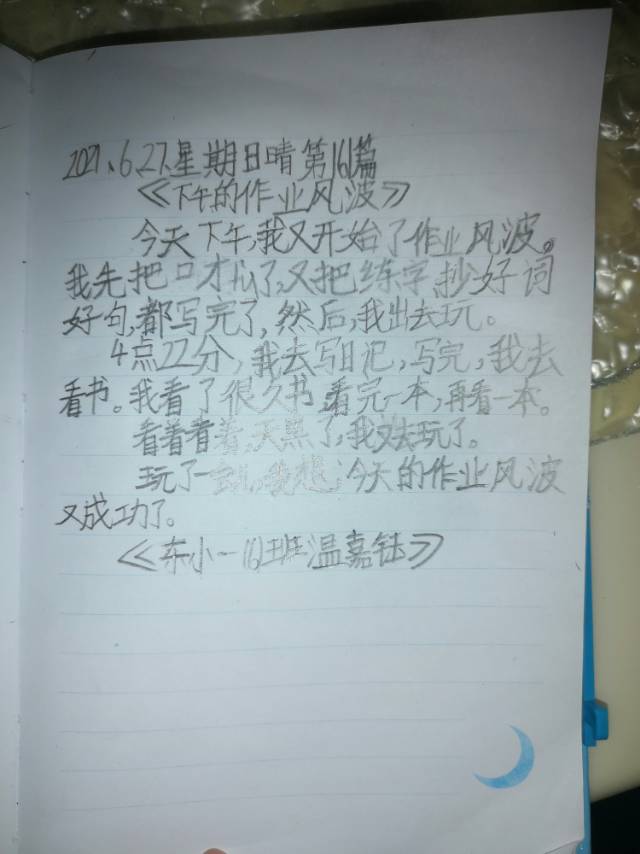 2021、6.27.星期日晴第161篇
《下午的作业风波》
今天下午,我又开始了作业风波。
我先把口才了,又把练字抄好词
好句,都写完了,然后,我出去玩。
4点22分,我去写日记,写完,我去
看书。我看了很久书,看完一本,再看一本。
看着看着,天黑了,我又去玩了。
玩了一会儿,我想:今天的作业风波
又成功了。
《东小一16班温嘉钰》